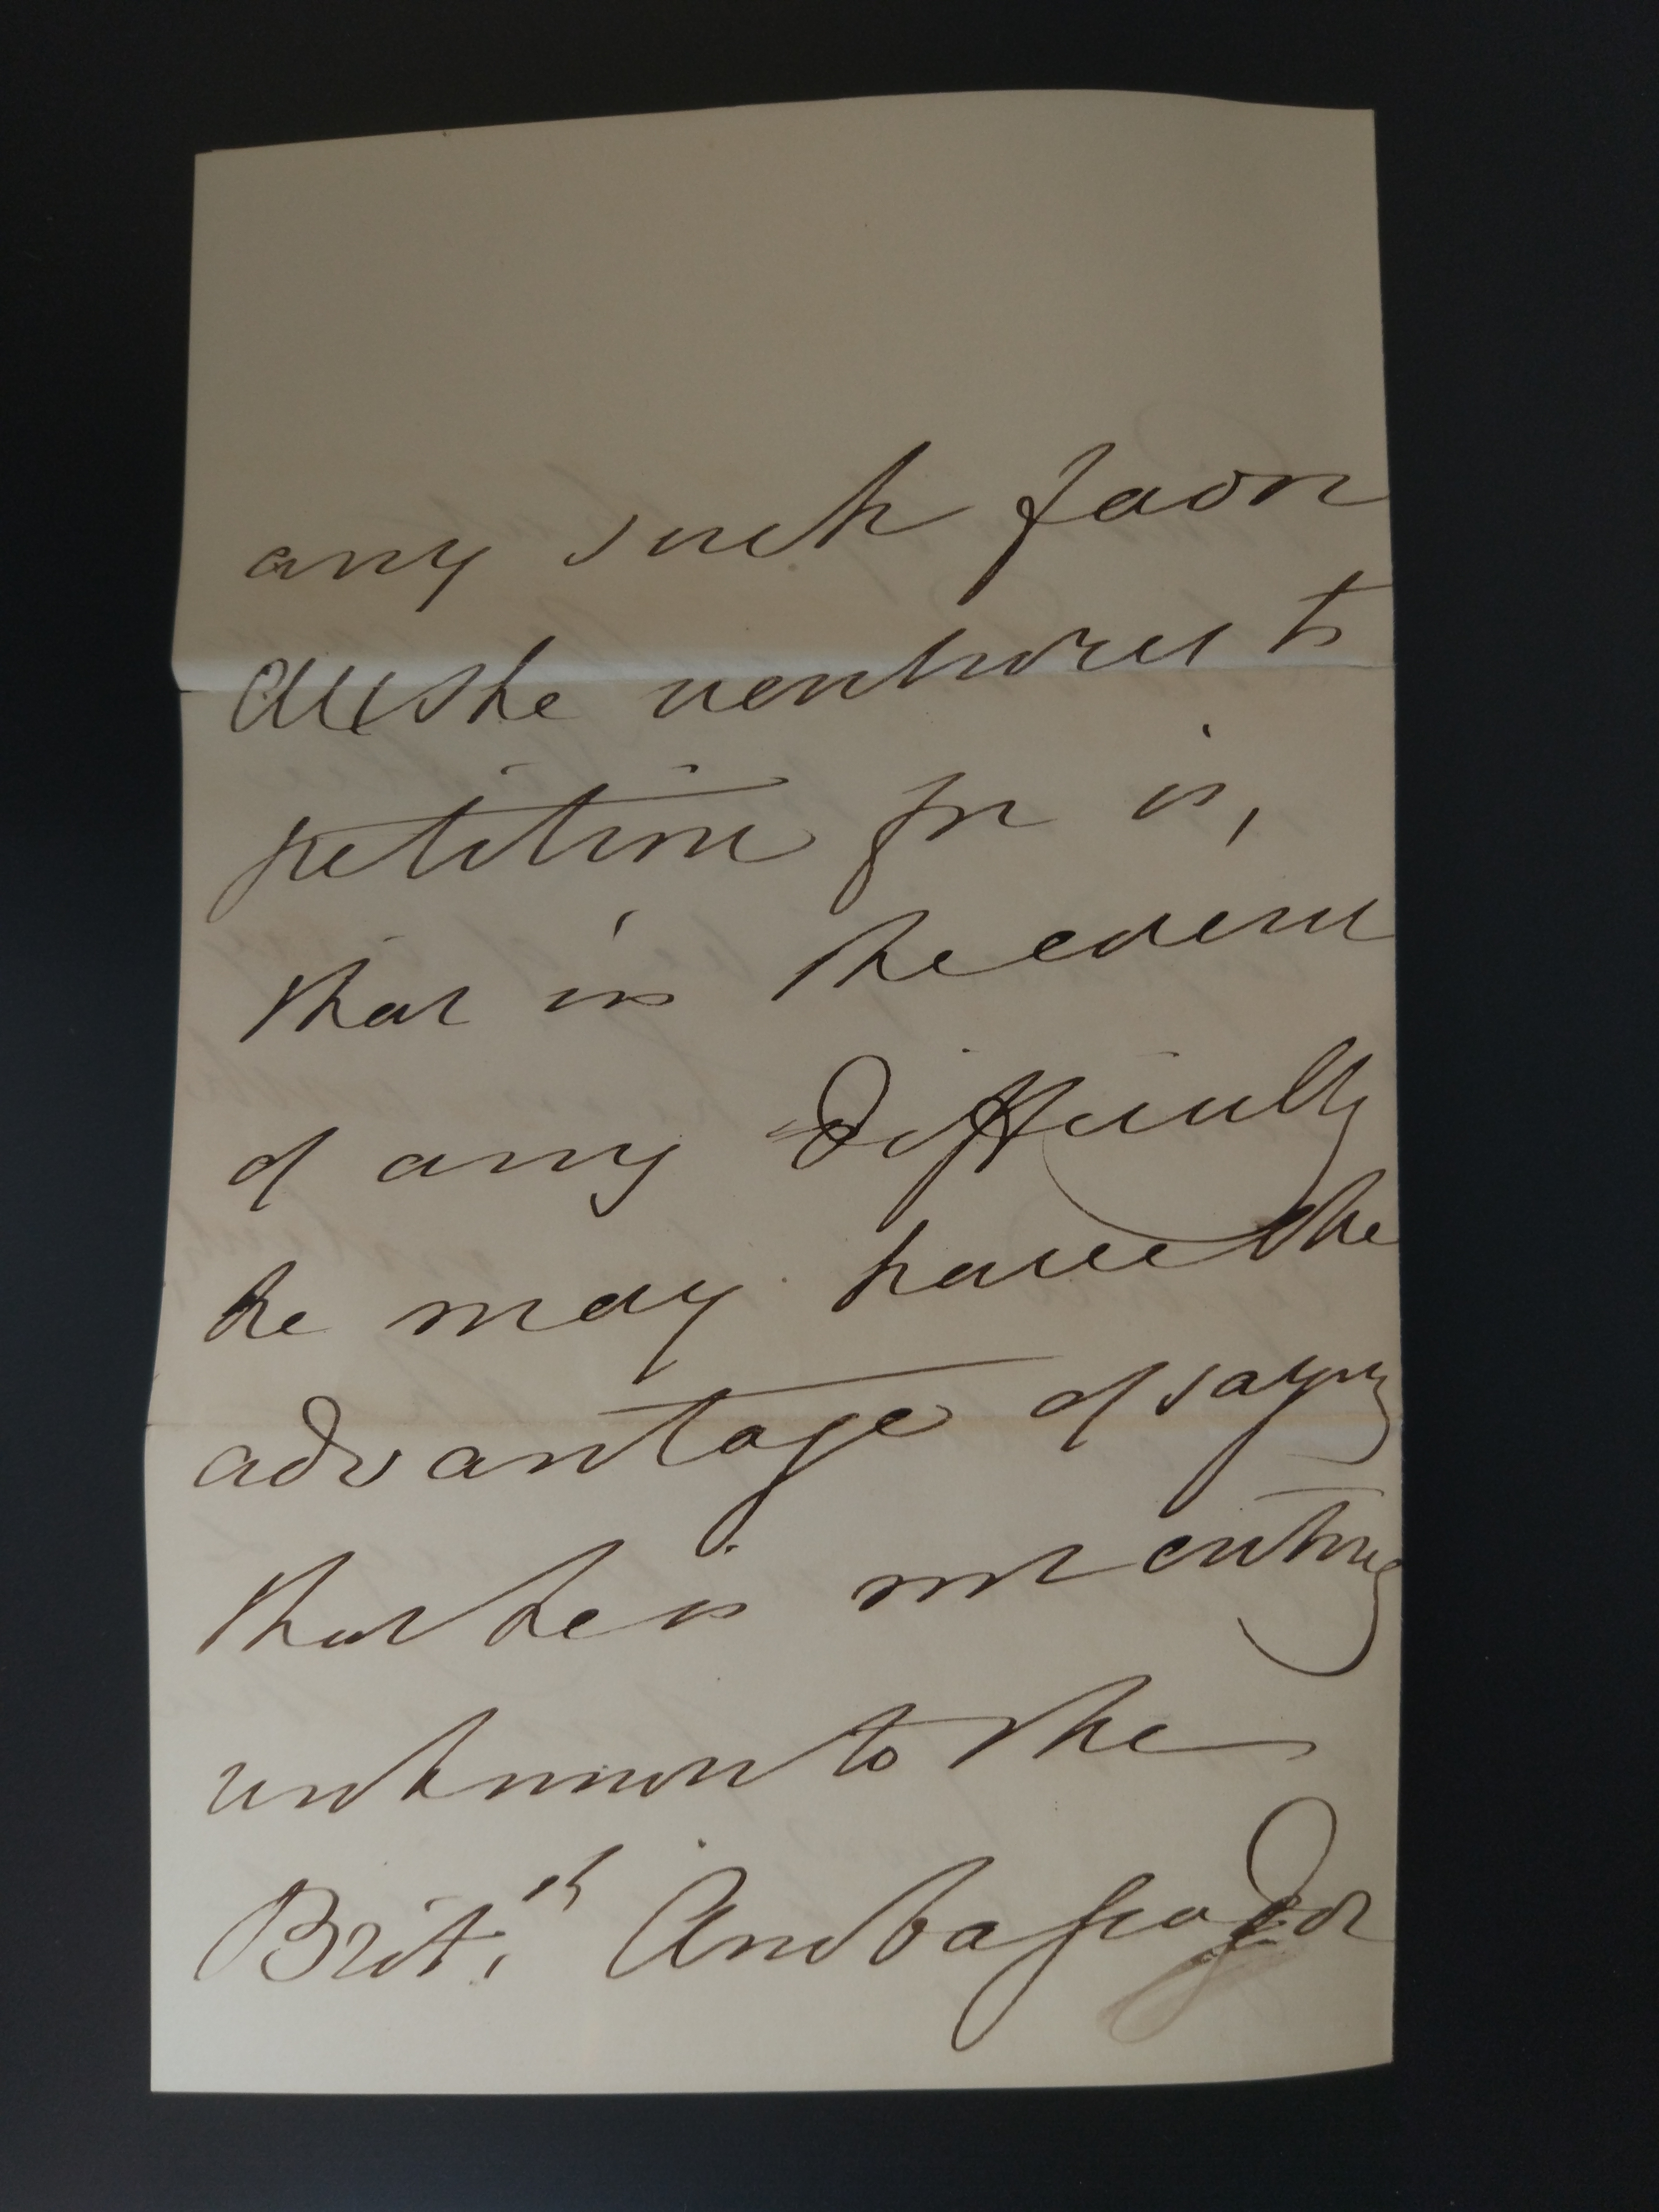 any such favor
All she ventures to
petition for is,
that in the event
of any difficulty
he may have the
advantage of saying
that he is not entirely
unknown to the
Brit.sh Ambassador